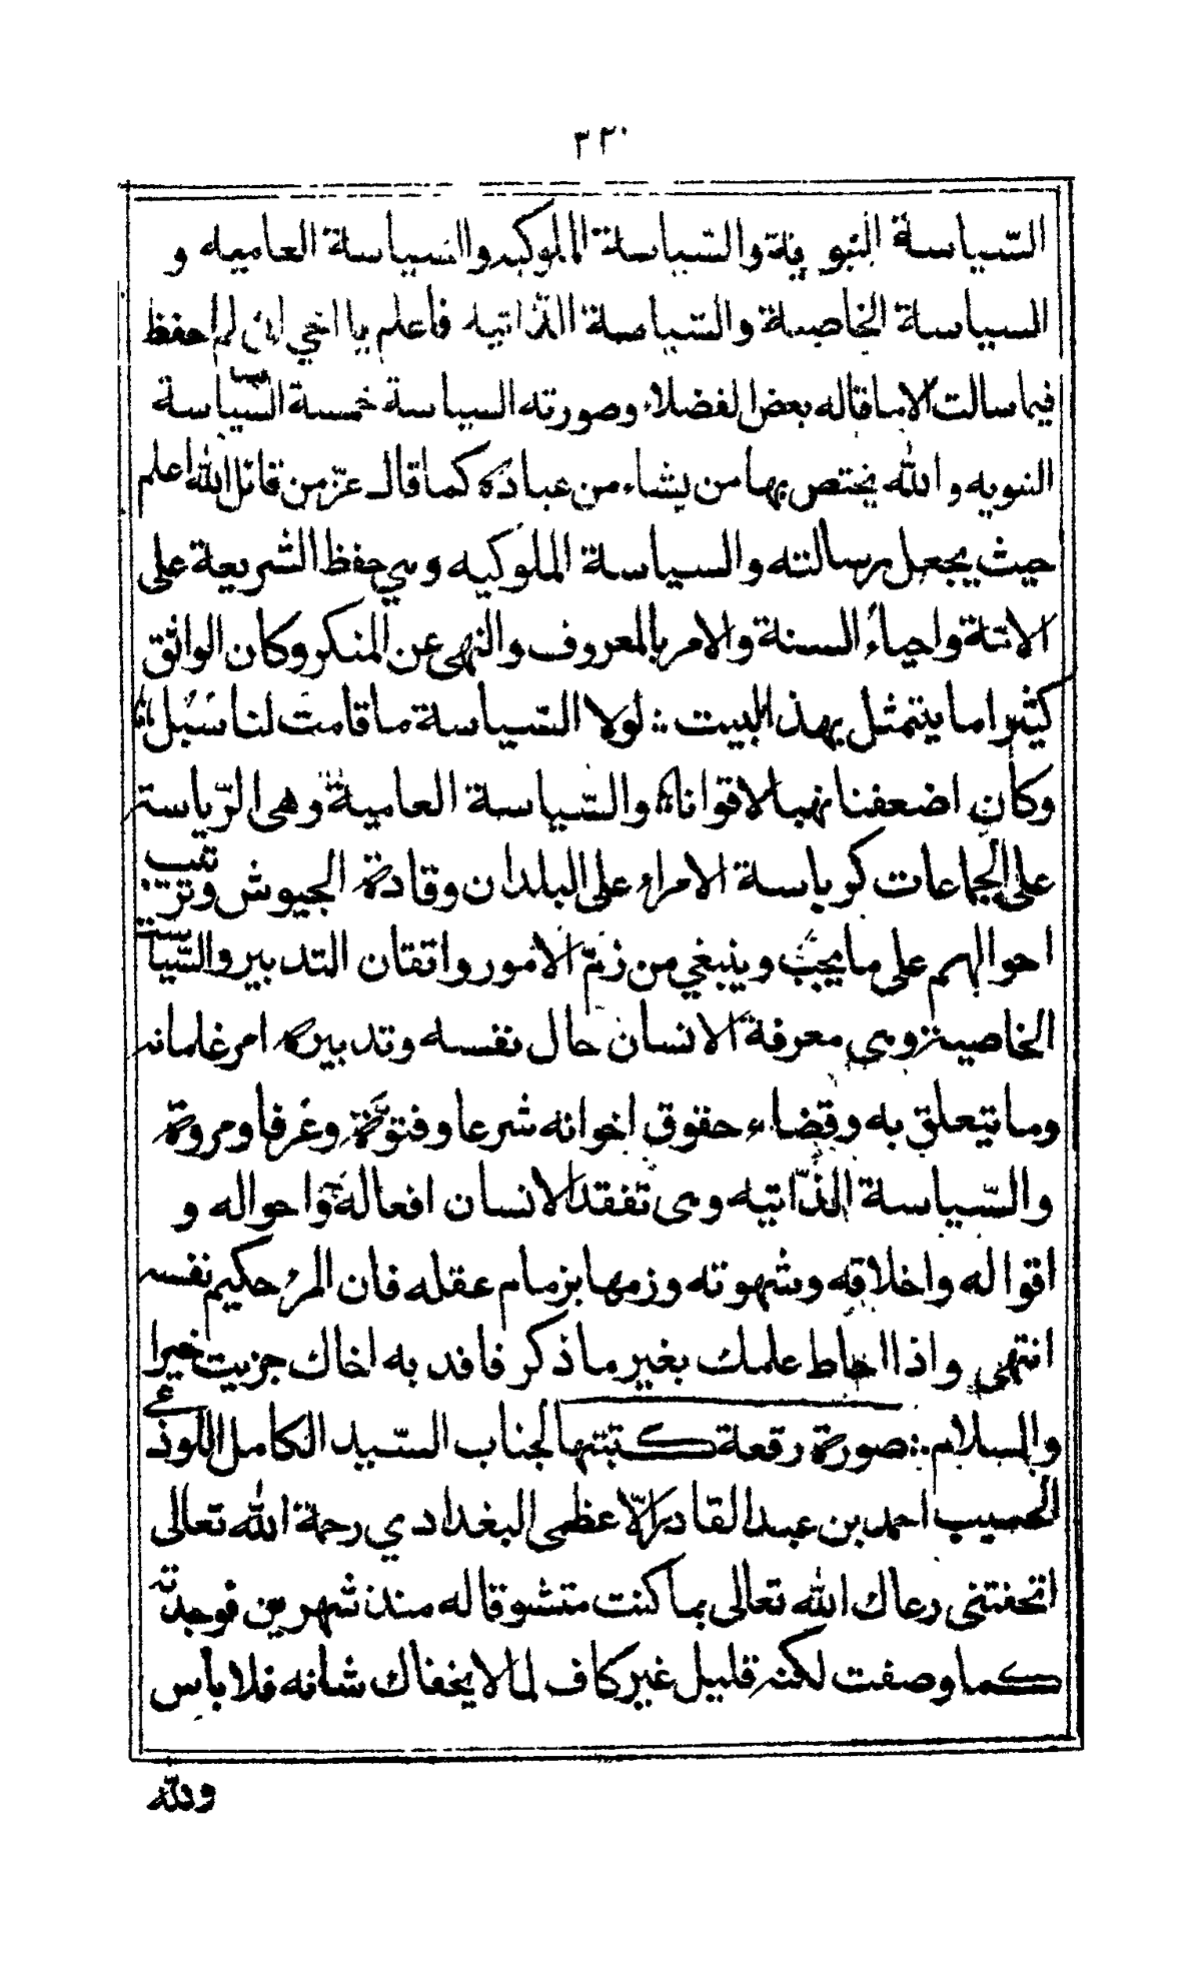 ٣٢٠
السّياسة النبويةّ والسّياسة الملوكيه والسياسة العاميه و
السياسة الخاصة والسّياسة الذّاتيه فاعلم يا اخي اني لم احفظ
فيما سالت الا ما قاله بعض الفضلاء وصورته السياسة خمسة السّياسة
النبويه والله يختص بها من يشاء من عباده كما قال عزّ من قائل الله اعلم
حيث يجعل رسالته والسياسة الملوكيه وهي حفظ الشريعة على
الامّة واحياء السنة والامر بالمعروف والنهى عن المنكر وكان الواثق
كثيرا ما يتمثل بهذا البيت :: لولا السّياسة ما قامت لنا سُبُل
وكان اضعفنا نهبا لاقوانا والسّياسة العامية وهى الرّياسة
على الجماعات كرياسة الامراء على البلدان وقادة الجيوش وترتيب
احوالهم على ما يجب وينبغي من زمّ الامور واتقان التدبير والسّياسة
الخاصية وهى معرفة الانسان حال نفسه وتدبيره امر غلمانه
وما يتعلق به وقضاء حقوق اخوانه شرعا وفتوّة وعرفا ومروة
والسّياسة الذّاتيه وهى تفقد الانسان افعاله واحواله و
اقواله واخلاقه وشهوته وزمها بزمام عقله فان المرء حكيم نفسه
انتهى واذا احاط علمك بغير ما ذكر فافد به اخاك جزيت خيرا
والسلام :: صورة رقعة كتبتها لجناب السّيد الكامل اللوذعي
الحسيب احمد بن عبد القادر الاعظمى البغدادي رحمة الله تعالى
اتحفتنى رعاك الله تعالى بما كنت متشوقا له منذ شهرين فوجدته
كما وصفت لكنه قليل غير كاف لما لا يخفاك شانه فلا بأس
ولله